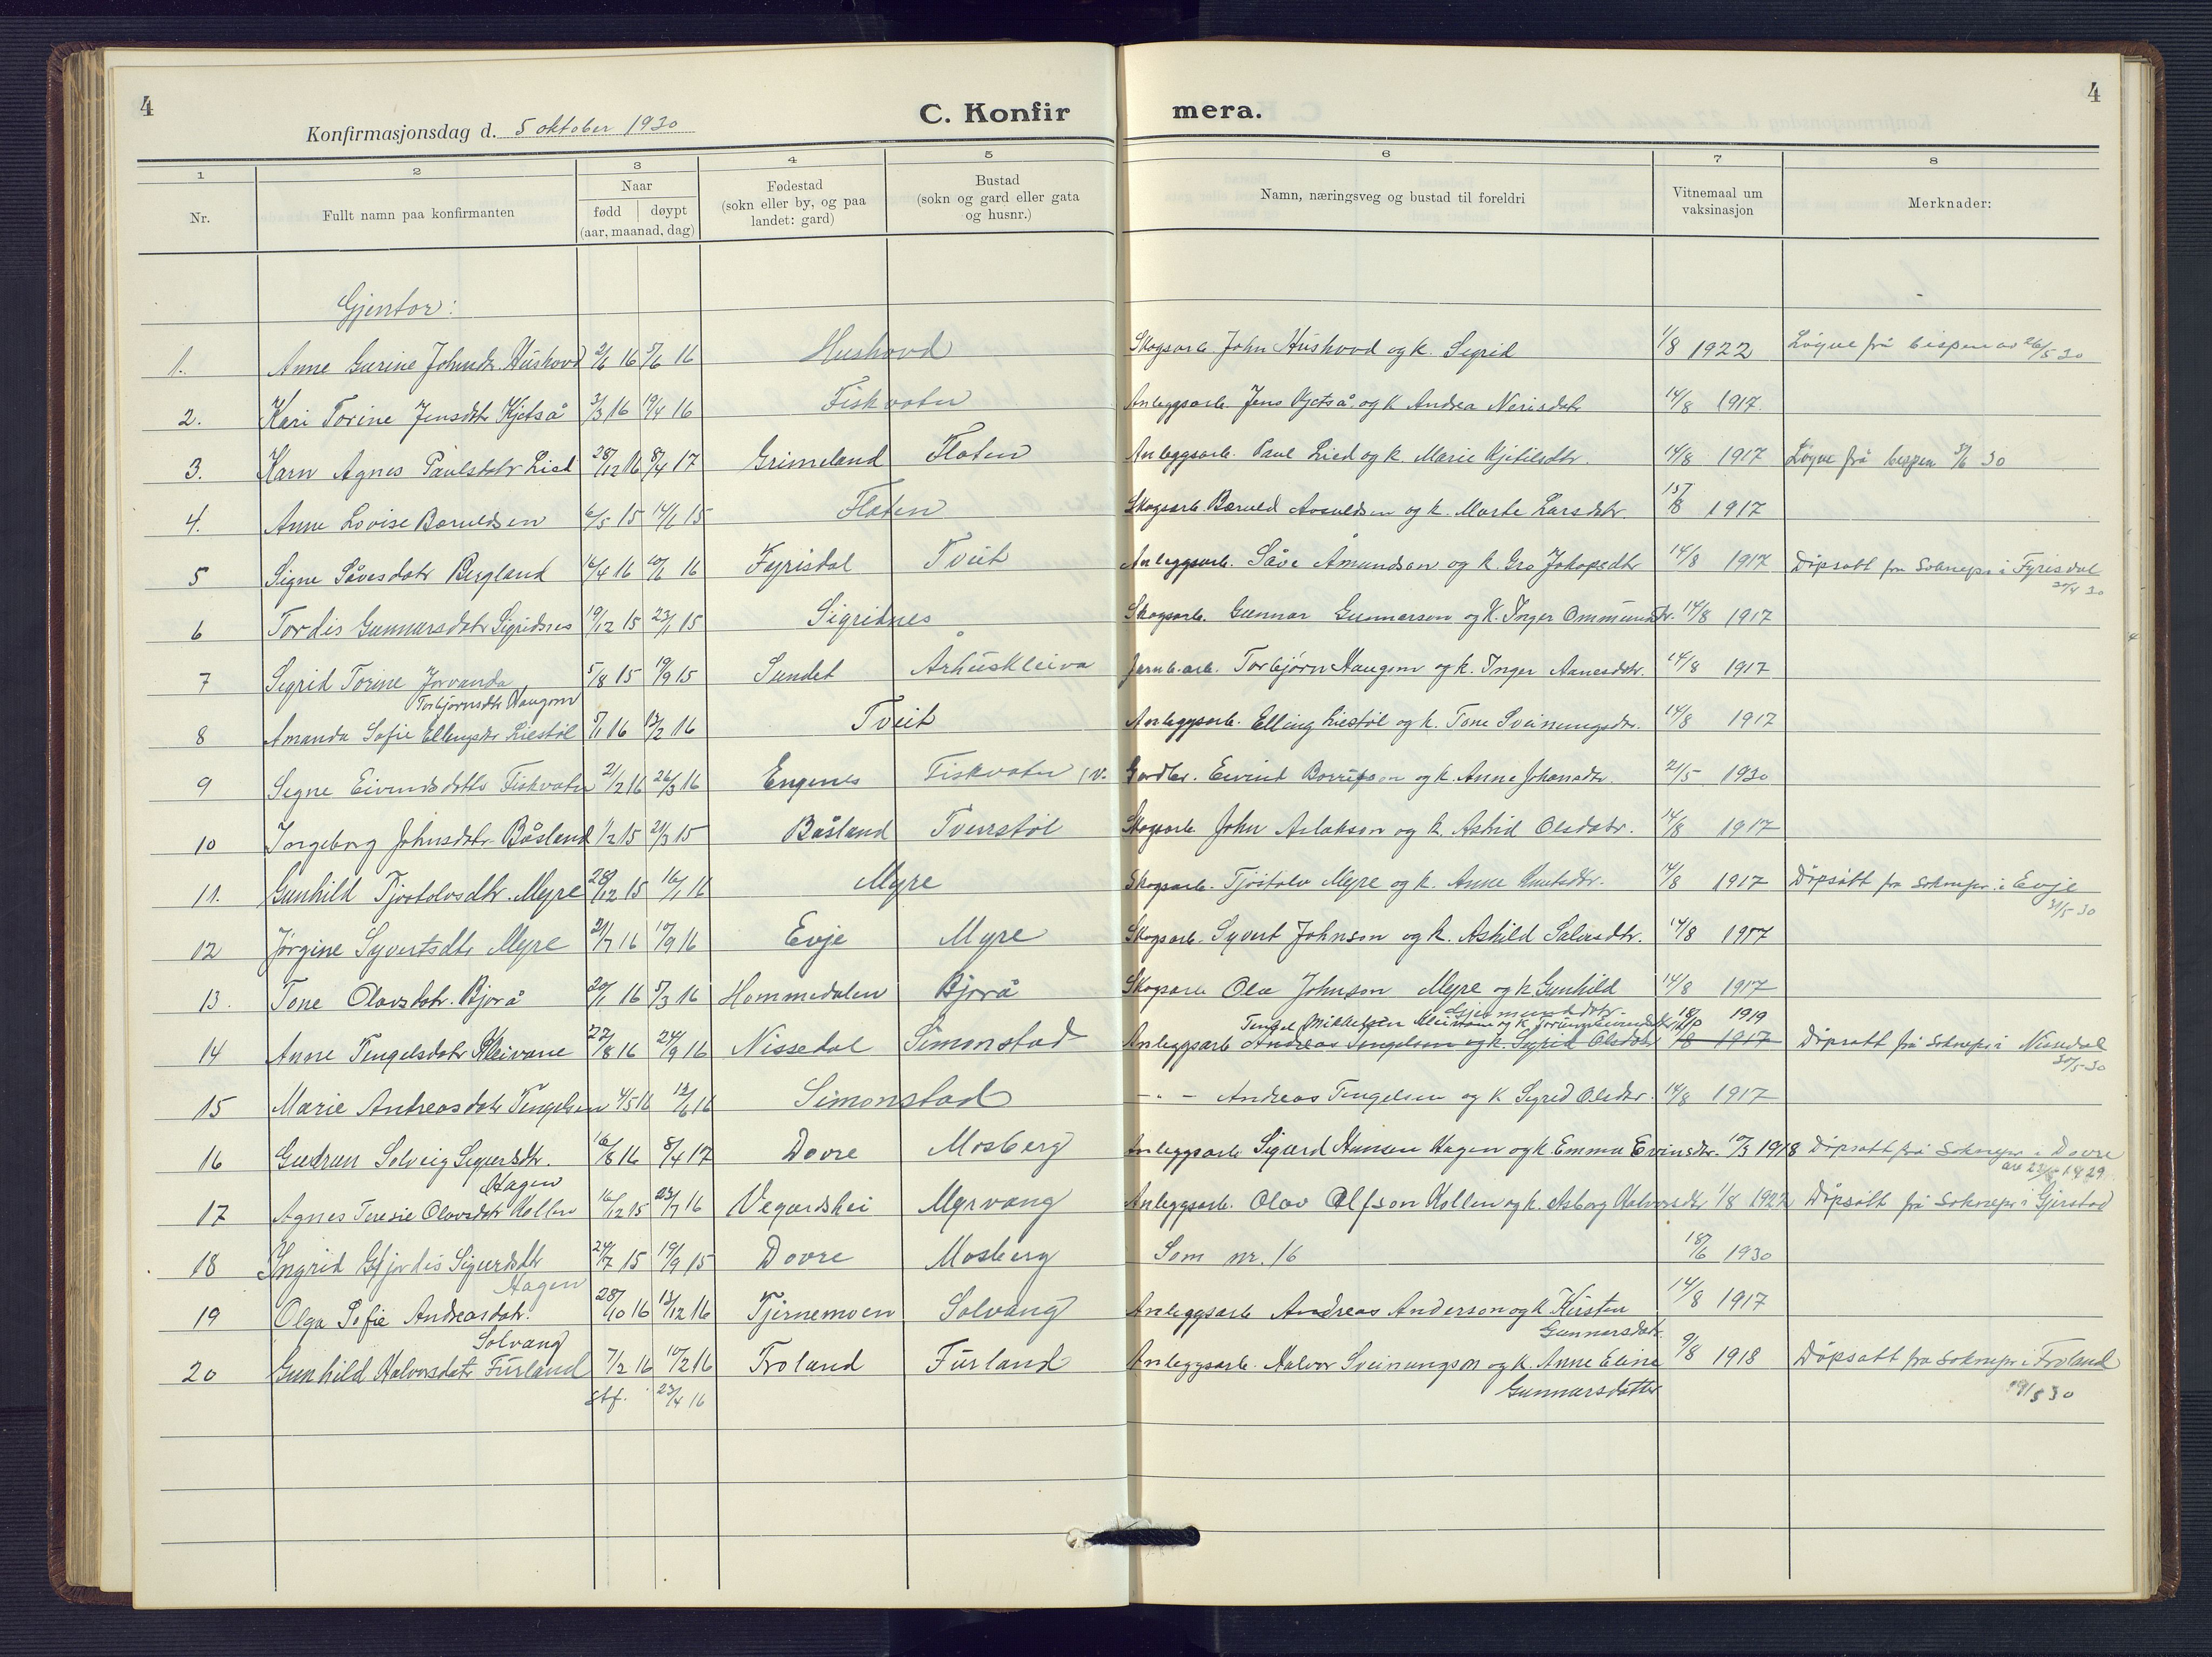 4
Konfirmasjonsdag d. 5 oktober 1930
C. Konfir
mera.
4
1 2 3 4 5 6 7 8
Nr. Fullt namn paa konfirmanten Naar fødd døypt (aar, maanad, dag) Fødestad (sokn eller by, og paa landet: gard) Bustad (sokn og gard eller gata og husnr.) Namn, næringsveg og bustad til foreldri Vitnemaal um vaksinasjon Merknader:
Gjentor:
1. Anne Gurine Johnsdtr. Hushovd 2/1 16 5/6 16 Hushovd Skogsarb. John Hushovd og k. Sigrid 1/8 1922 Løyve frå bispen av 26/5 30
2. Kari Torine Jensdtr Kjetså 3/3 16 19/4 16 Fiskvatn Anleggsarb. Jens Kjetså og k Andrea Nerisdatr 14/8 1917.
3. Karn Agnes Paulsdatr Lied 28/12 16 8/4 17 Grimeland Flaten Anleggsarb. Paul Lied og k. Marie Kjetilsdtr. 14/8 1917 Løyve frå bispen 3/6 30
4. Anne Lovise Baruldsen 6/5 15 14/6 15 Flaten Skogsarb. Baruld Asvuldsen og k. Marte Larsdtr. 15/8 1917
5 Signe Såvesdatr Bergland 16/4 16 10/6 16 Fyrisdal Tveit Anleggsarb. Såve Åmundsen og k. Gro Jakopsdtr 14/8 1917 Dåpsatt frå Soknepr. i Fyrisdal
30/4 30
6 Tordis Gunnarsdatr Sigridsnes 19/12 15 23/1 15 Sigridnes Skogsarb. Gunnar Gunnarson og k. Inger Ommundsdtr. 14/8 1917
7 Sigrid Torine Jorvanda 5/8 15 19/9 15 Sundet Århuskleiva Jarnb.arb. Torbjørn Haugom og k. Inger Aanesdtr. 14/8 1917
Torbjørnsdtr Haugom
8 Amanda Sofie Ellingsdtr Liestøl 5/1 16 13/2 16 Tveit Anleggsarb. Elling Liestøl og k. Tone Sveinungsdtr. 14/8 1917
9 Signe Eivindsdattr Fiskvatn 21/2 16 26/3 16 Engenes Fiskvatn Gardbr. Eivind Borrufson og k. Anne Johansdtr. 21/5 1930
10 Ingeborg Johnsdatr. Båsland 1/2 15 21/3 15 Båsland Tverstøl Skogsarb John Aslakson og k. Astrid Olsdatr. 14/8 1917
11. Gunhild Tjostolvsdtr. Myre 28/12 15 16/1 16 Myre Skogsarb. Tjostolv Myre og k. Anne Knutsdtr. 14/8 1917 Dåpsatt frå Soknepr. i Evje
31/5 30
12 Jørgine Syvertsdtr Myre 21/7 16 10/9 16 Evje Myre Skogsarb. Syvert Johnson og k. Askild Salvesdtr. 14/8 1917
13. Tone Olavsdatr. Bjorå 20/1 16 5/3 16 Hommedalen Bjorå Skogsarb Ola Johnson Myre og k Gunhild 14/8 1917
Tengel Mikkelsen Kleivane og k. Torunn 18/10 1919
14 Anne Tengelsdatr Kleivane 22/8 16 24/9 16 Nissedal Simonstad Anleggsarb Andreas Tengelsen og k. Sigrid Olsdatr 14/8 1917 Dåpsatt frå Soknepr. i Nissedal
30/5 30
15 Marie Andreasdatr Tengelsen 4/5 16 12/6 16 Simonstad - " - Andreas Tengelsen og k Sigrid Olsdtr. 14/8 1917
16 Gudrun Solveig Sigurdsdtr. 16/8 16 8/4 17 Dovre Mosberg Anleggsarb Sigurd Hansen Hagen og k. Emma Evinsdtr. 10/3 1918 Dåpsatt frå Soknepr i Dovre
Hagen av 23/5 1929.
17 Agnes Teresie Olavsdatr Kollen 16/12 15 23/7 16 Vegardshei Myrvang Anleggsarb. Olav Olfson Kollen og k. Asborg Halvorsdtr 1/8 1922 Dåpsatt frå Soknepr i Gjerstad
18 Ingrid Gjørdis Sigurdsdtr 24/7 15 19/9 15 Dovre Mosberg Som nr. 16 18/6 1930
Hagen
19 Olga Sofie Andreasdatr. 28/10 16 13/12 16 Tjernemoen Solvang Anleggsarb Andreas Anderson og k Kirsten 14/8 1917
Solvang Gunnarsdatr
20 Gunhild Halvorsdatr Furland 7/2 16 10/2 16 Froland Furland Anleggsarb. Halvor Sveinungson og k. Anne Eline 9/8 1918 Dåpsatt frå Soknepr i Froland
stf. 23/4 16 Gunnarsdatter 19/5 30